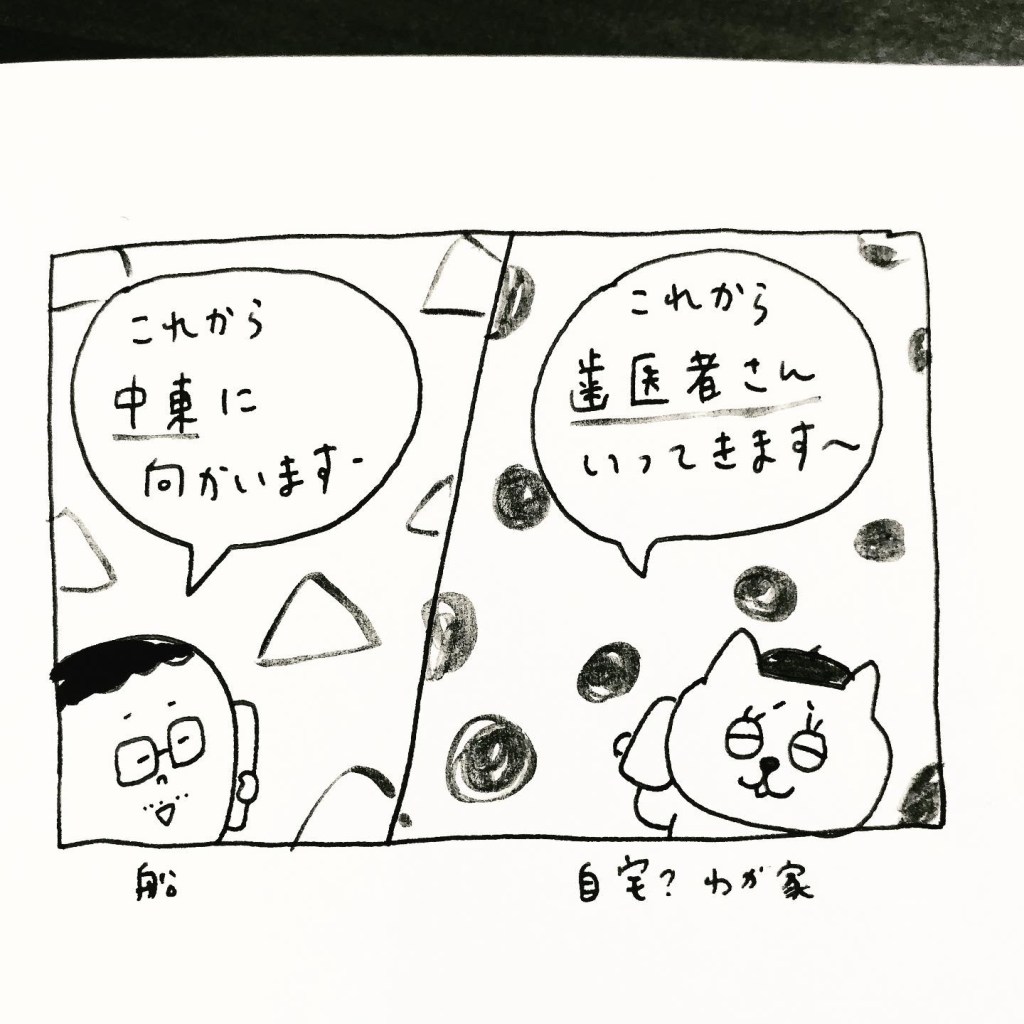 これから
中東に
向かいます-
これから
歯医者さん
いってきます〜
船
自宅？わが家